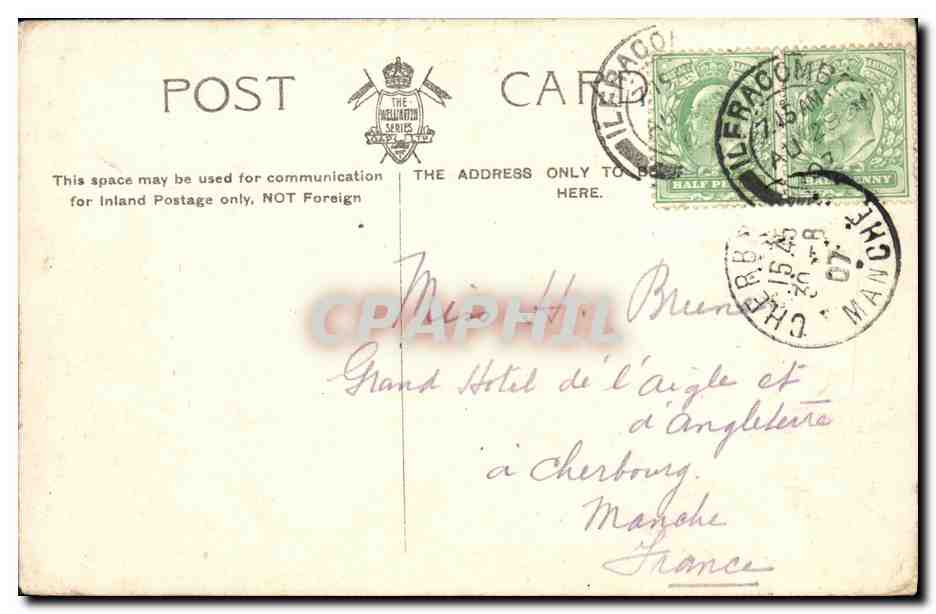 POST CARD
THE
WELLINGTON
SERIES
This space may be used for communication
for Inland Postage only, NOT Foreign
THE ADDRESS ONLY TO BE
HERE.
ILFRACOMBE
ILFRACOMBE
7.15 AM
AU 29
07
HALF PENNY
HALF PENNY
CHERBOURG
15 45
30 -8
07
MANCHE
Miss H.
Grand Hotel de l'Aigle et
d'Angleterre
à Cherbourg.
Manche
France
CPAPHIL